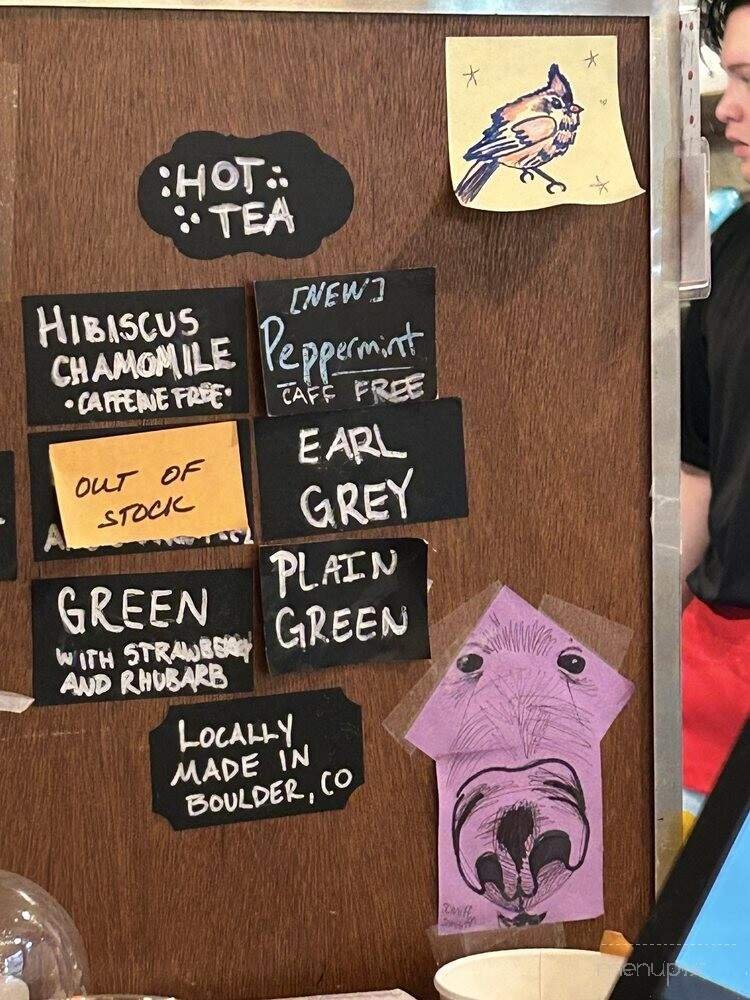 HOT
TEA
HIBISCUS
CHAMOMILE
•CAFFEINE FREE•
[NEW]
Peppermint
CAFF FREE
OUT OF
STOCK
EARL
GREY
GREEN
WITH STRAWBERRY
AND RHUBARB
PLAIN
GREEN
LOCALLY
MADE IN
BOULDER, CO
menupix